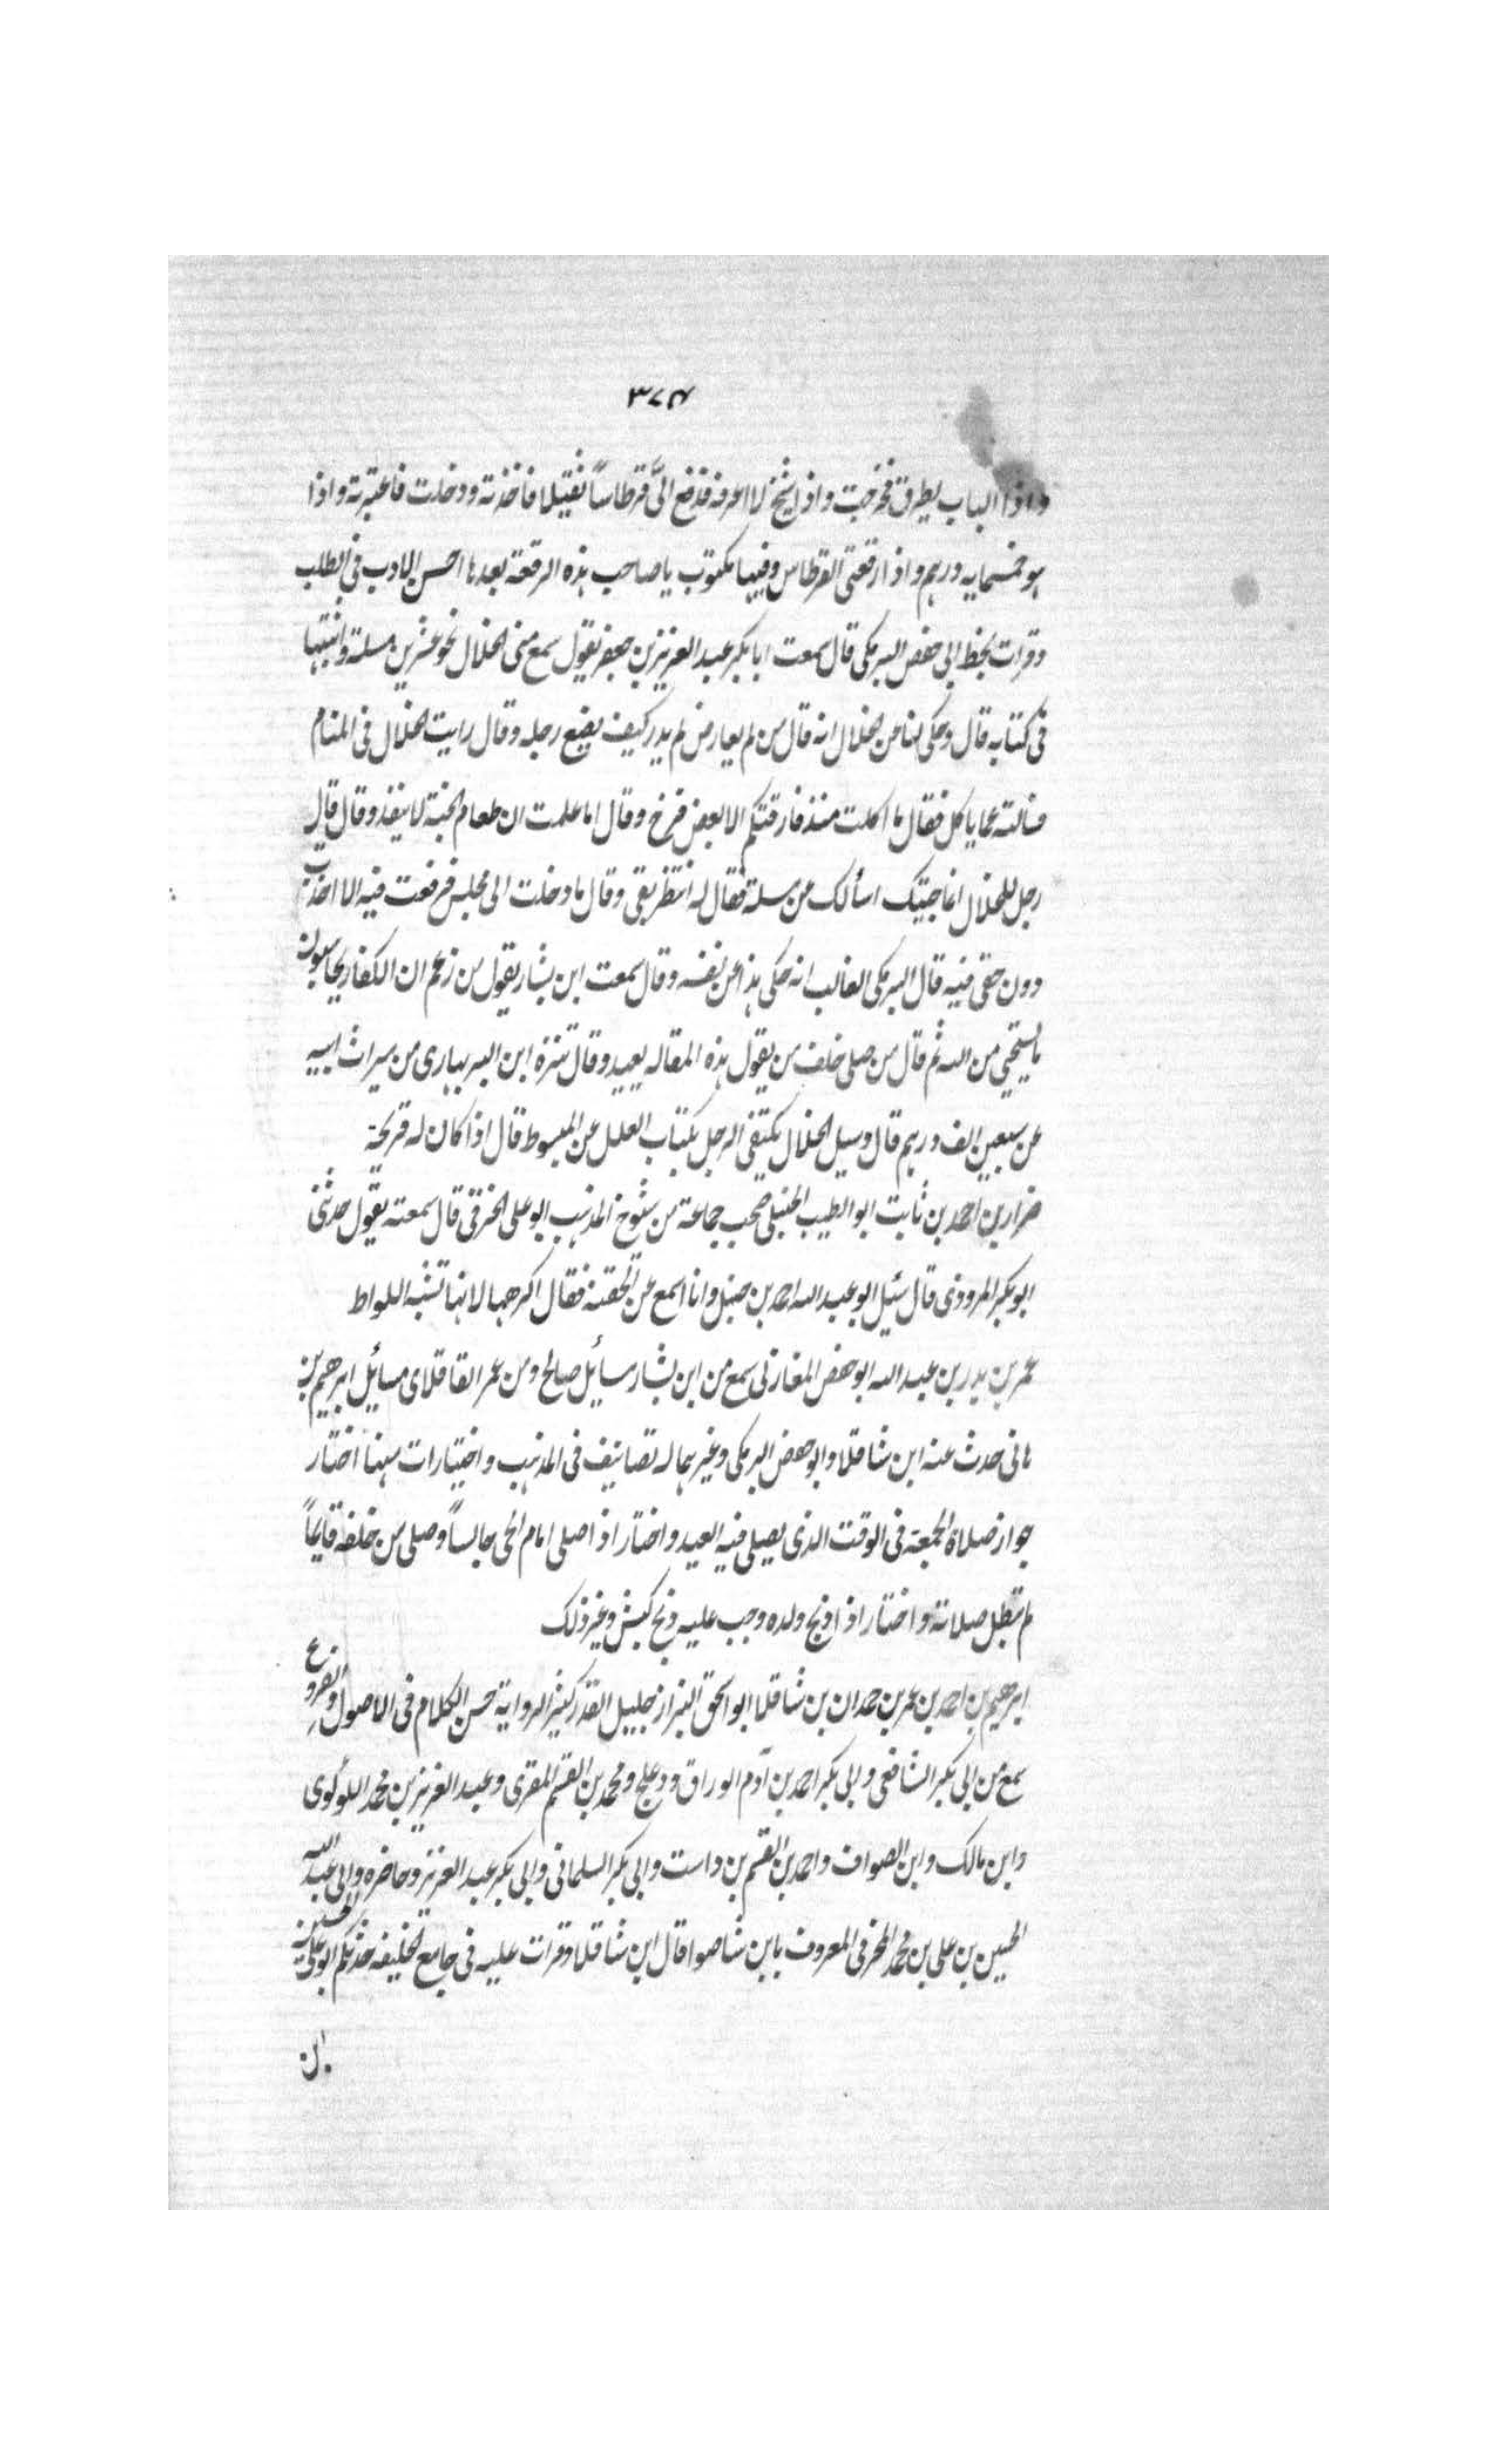 ٣٧٤
واذا الباب يطرق فخرجت واذا شيخ لا اعرفه فدفع الىَّ قرطاساً ثقيلا فاخذته ودخلت فاعتبرته واذا
هو خمسمايه درهم واذا رقعة فى القرطاس وفيها مكتوب يا صاحب هذه الرقعة بعدها احسن الادب فى الطلب
وقرات بخط ابى حفص البرمكى قال سمعت ابا بكر عبد العزيز بن جعفر يقول سمع منى الخلال نحو عشرين مسلة واثبتها
فى كتابه قال وحكى لنا عن الخلال انه قال من لم يعارض لم يدر كيف يضع رجله وقال رايت الخلال فى المنام
فسالته عما ياكل فقال ما اكلت منذ فارقتكم الا بعض فرخ وقال اما علمت ان طعام الجنة لا ينفذ وقال قال
رجل للخلال انما جيتك اسألك عن مسلة فقال له انتظر بقى وقال ما دخلت الى مجلس فرفعت فيه الا اخذت
دون حقى فيه قال البرمكى الغالب انه حكى هذا عن نفسه وقال سمعت ابن بشار يقول من زعم ان الكفار يحاسبون
ما يستحيى من الله ثم قال من صلى خلف من يقول هذه المقاله يعيد وقال تنزه ابن البربهارى من ميراث ابيه
عن سبعين الف درهم قال وسيل الخلال يكتفى الرجل بكتاب العلل عن المبسوط قال اذا كان له قريحة
ضرار بن احمد بن ثابت ابو الطيب الحنبلى صحب جماعة من شيوخ المذهب ابو على الخرقى قال سمعته يقول حدثنى
ابو بكر المروذى قال سئل ابو عبد الله احمد بن حنبل وانا اسمع عن الحقنة فقال اكرهها لانها تشبه اللواط
عمر بن بدر بن عبد الله ابو حفص المغازلى سمع من ابن بشار مسايل صالح ومن عمر القافلاى مسايل ابرهيم بن
هانى حدث عنه ابن شاقلا وابو حفص البرمكى وغيرهما له تصانيف فى المذهب واختيارات منها اختار
جواز صلاة الجمعة فى الوقت الذى يصلى فيه العيد واختار اذا صلى امام الحى جالساً وصلى من خلفه قايماً
لم تبطل صلاته واختار اذا ذبح ولده وجب عليه ذبح كبش وغير ذلك
ابرهيم بن احمد بن عمر بن حمدان بن شاقلا ابو اسحق البزاز جليل القدر كثير الرواية حسن الكلام فى الاصول والفروع
سمع من ابى بكر الشافعى وابى بكر احمد بن آدم الوراق ودعلج ومحمد بن القسم المقرى وعبد العزيز بن محمد اللؤلؤى
وابن مالك وابن الصواف واحمد بن القسم بن داست وابى بكر السلمانى وابى بكر عبد العزيز وحاضره وابى عبد الله
الحسين بن على بن محمد المخرمى المعروف بابن شاصوا قال ابن شاقلا وقرات عليه فى جامع الخليفه حدثكم ابو على